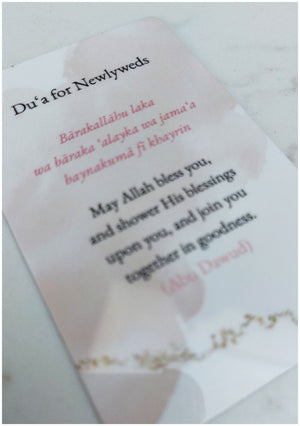 Du‘a for Newlyweds
Bārakallāhu laka
wa bāraka ‘alayka wa jama‘a
baynakumā fī khayrin
May Allah bless you,
and shower His blessings
upon you, and join you
together in goodness.
(Abu Dawud)